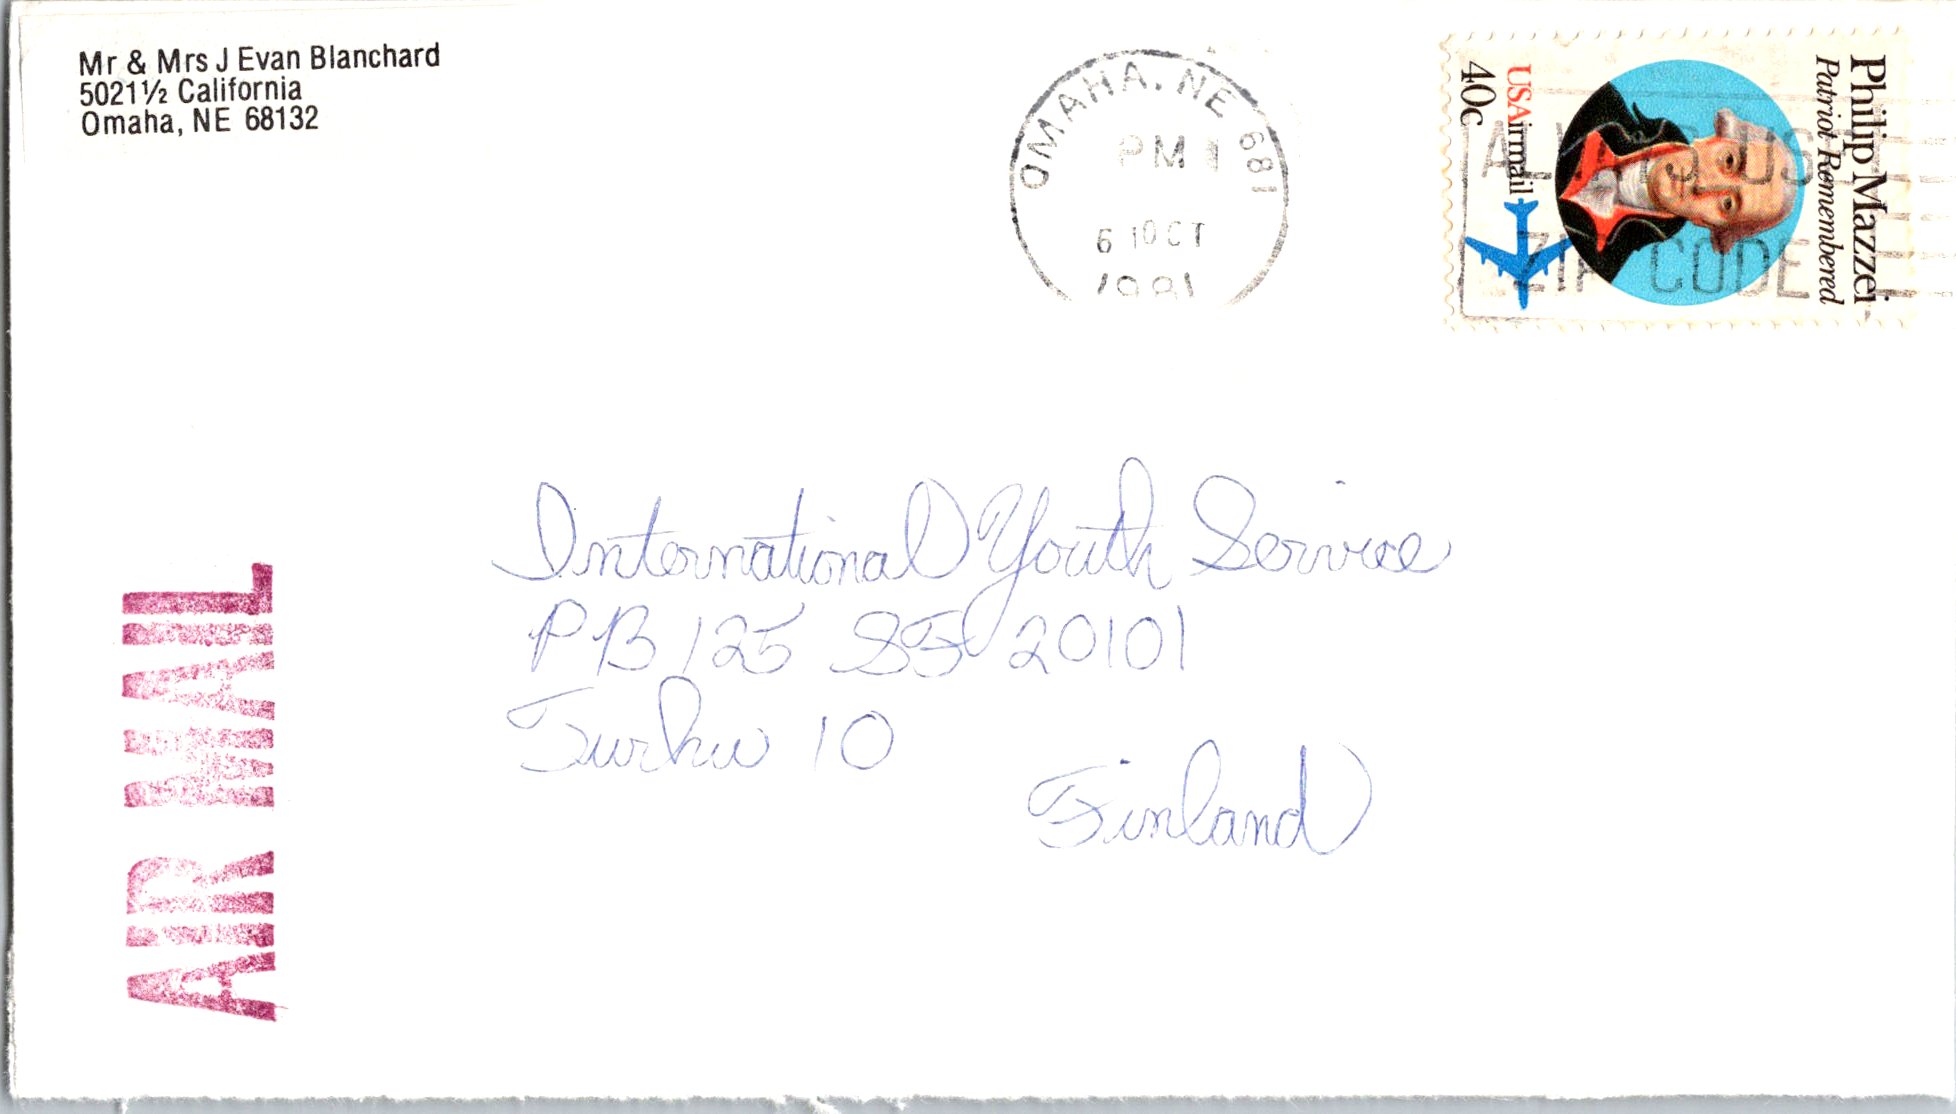 Mr & Mrs J Evan Blanchard
5021½ California
Omaha, NE 68132
OMAHA, NE 681
PM
6 OCT
1981
Philip Mazzei
Patriot Remembered
USAirmail
40c
ALWAYS USE
ZIP CODE
International Youth Service
PB 125 SF 20101
Turku 10
Finland
AIR MAIL